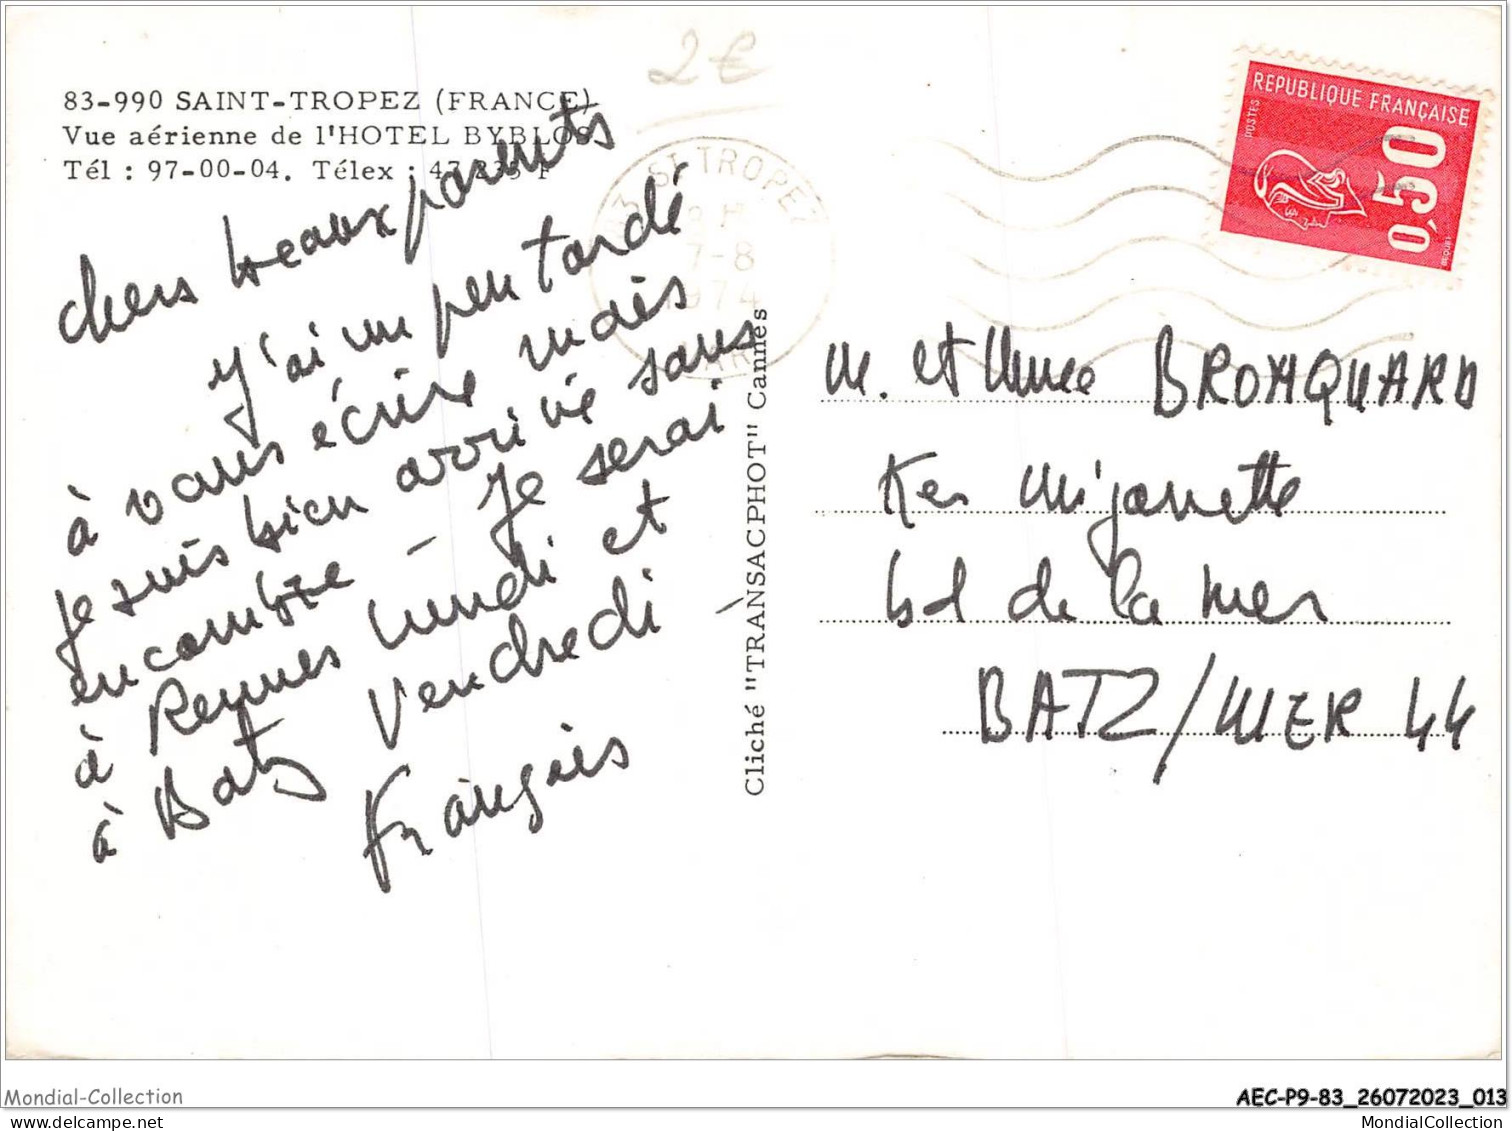 2€
83-990 SAINT-TROPEZ (FRANCE)
Vue aérienne de l'HOTEL BYBLOS
Tél : 97-00-04. Télex :
83 ST TROPEZ
7-8
1974
VAR
REPUBLIQUE FRANÇAISE
POSTES
0,50
chers beaux parents
j'ai un peu tardé
à vous écrire mais
je suis bien arrivé sans
encombre - Je serai
à Rennes lundi et
à Batz vendredi
François
Cliché "TRANSACPHOT" Cannes
M. et Mme BROHQUARD
Ker Mijanette
bd de la mer
BATZ/MER 44
Mondial-Collection
AEC-P9-83_26072023_013
delcampe.net
MondialCollection